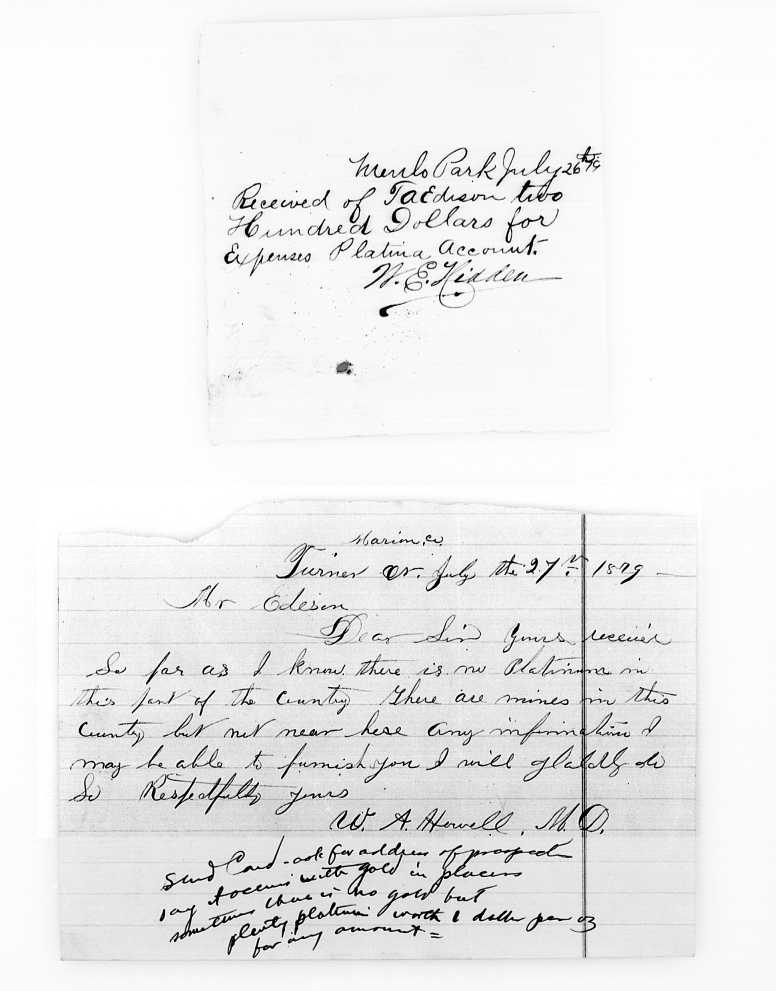 Menlo Park July 26th 79
Received of TAEdison two
Hundred Dollars for
Expenses Platina Account.
W. E. Hidden
Marion, Co
Turner Or. July the 27th 1879
Mr Edeson
Dear Sir Yours
So far as I know there is no Platinum in
this part of the Country There are mines in this
County but not near here Any information I
may be able to furnish you I will gladly do
So Respectfully yours
W. A. Howell, M.D.
Send Card - ask for address of
say it occurs with gold in placers
sometimes there is no gold but
plenty platinum worth 1 dollar per oz
for any amount =